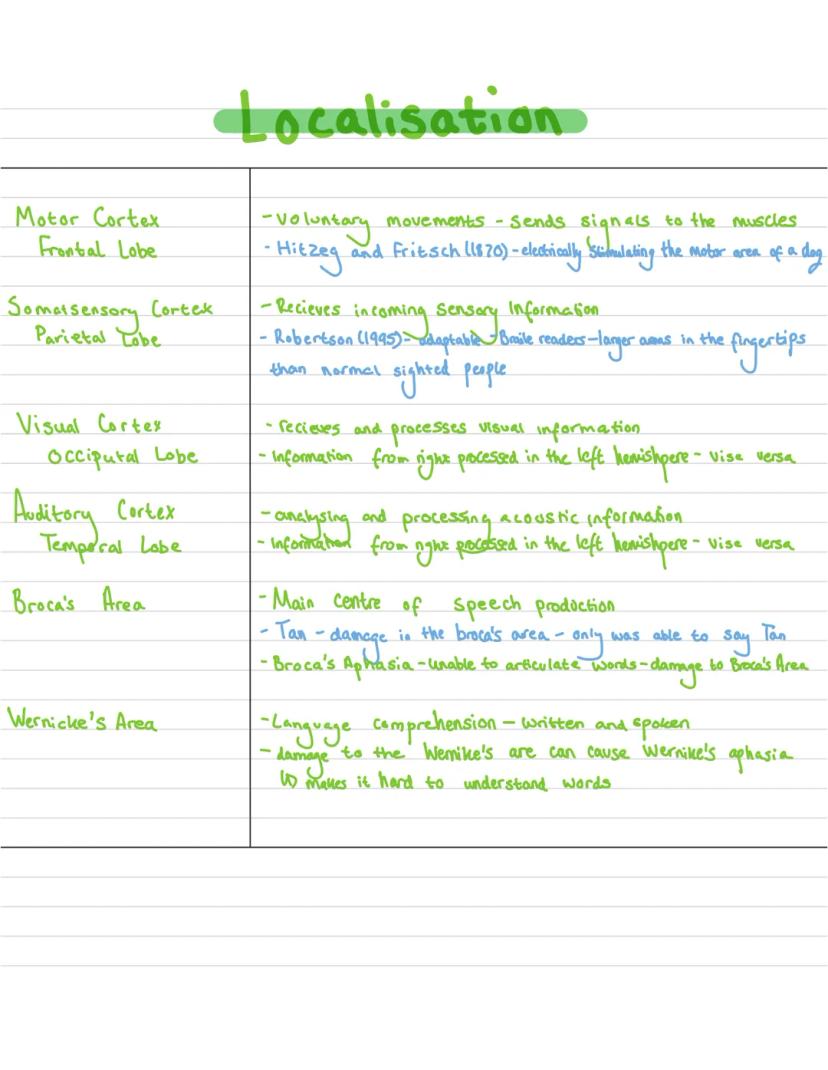 Localisation
Motor Cortex
Frontal Lobe
- Voluntary movements - sends signals to the muscles
- Hitzeg and Fritsch (1870) - electrically stimulating the motor area of a dog
Somatsensory Cortex
Parietal Lobe
- Recieves incoming sensory Information
- Robertson (1995) - adaptable - Braile readers - larger areas in the fingertips
than normal sighted people
Visual Cortex
Occiputal Lobe
- recieves and processes visual information
- Information from right processed in the left hemishpere - vise versa
Auditory Cortex
Temporal Lobe
- analysing and processing acoustic information
- Information from right processed in the left hemishpere - vise versa
Broca's Area
- Main centre of speech production
- Tan - damage in the broca's area - only was able to say Tan
- Broca's Aphasia - unable to articulate words - damage to Broca's Area
Wernicke's Area
- Language comprehension - written and spoken
- damage to the Wernike's are can cause Wernike's aphasia
↳ makes it hard to understand words